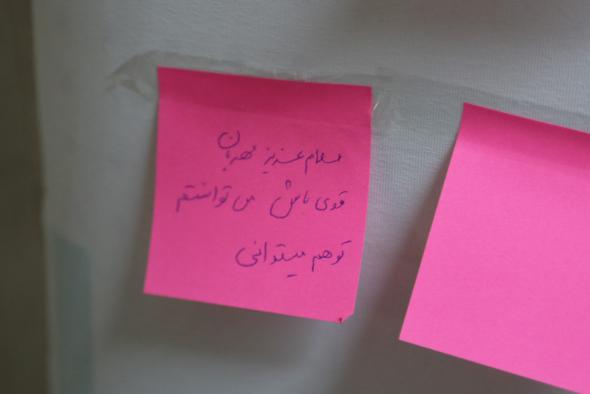 سلام عزیز مهربان
قوی باش من توانستم
تو هم میتوانی